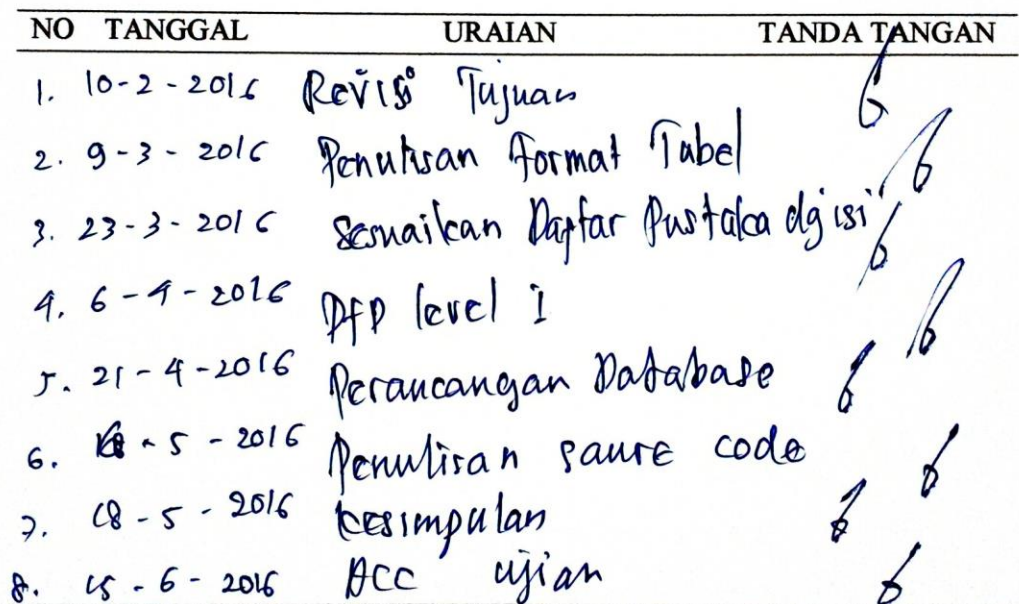 NO TANGGAL URAIAN TANDA TANGAN
1. 10-2-2016 Revisi Tujuan
2. 9-3-2016 Penulisan Format Tabel
3. 23-3-2016 Sesuaikan Daftar Pustaka dg isi
4. 6-4-2016 DFD level I
5. 21-4-2016 Perancangan Database
6. -5-2016 Penulisan saure code
7. 18-5-2016 kesimpulan
8. 15-6-2016 ACC ujian